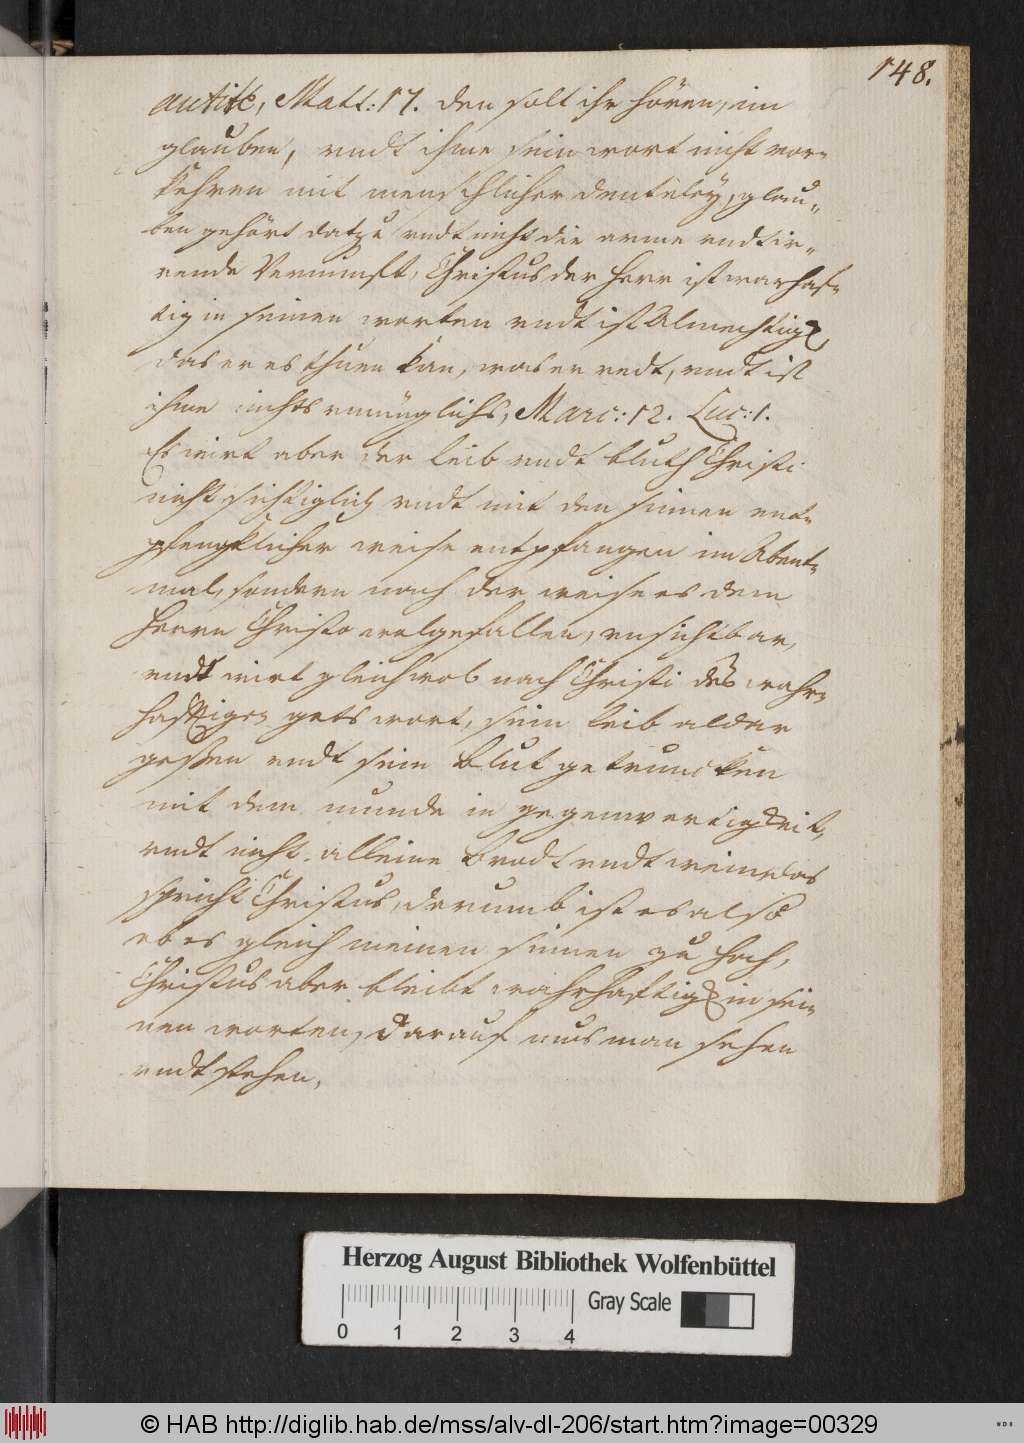 148.
audite, Matt: 17. den solt ihr hören, im
glauben, undt ihme sein wort nicht vor-
kehren mit menschlicher deuteley, glau-
ben gehört datzu undt nicht die arme undt ir-
rende Vernunfft, Christus der Herr ist warhaf-
tig in seinen worten undt ist Almechtig,
das er es thuen kan, was er redt, undt ist
ihme nichts unmüglichs, Marc: 12. Luc: 1.
Es wirt aber der leib undt bluth Christi
nicht sichtiglich undt mit den sinnen ent-
pfengklicher weise entpfangen im Abent-
mal, sondern nach der weise es dem
Herrn Christo wolgefallen, unsichtbar,
undt wirt gleichwol nach Christi des wahr-
hafftigen gots wort, sein leib aldar
gessen undt sein blut getruncken
mit dem munde in gegenwertigkeit,
undt nicht alleine brodt undt wein, das
spricht Christus, darumb ist es also
ob es gleich meinen sinnen zu hoch,
Christus aber bleibt wahrhafftig in sei-
nen worten, darauf mus man sehen
undt stehen,
Herzog August Bibliothek Wolfenbüttel
0 1 2 3 4 Gray Scale
© HAB http://diglib.hab.de/mss/alv-dl-206/start.htm?image=00329